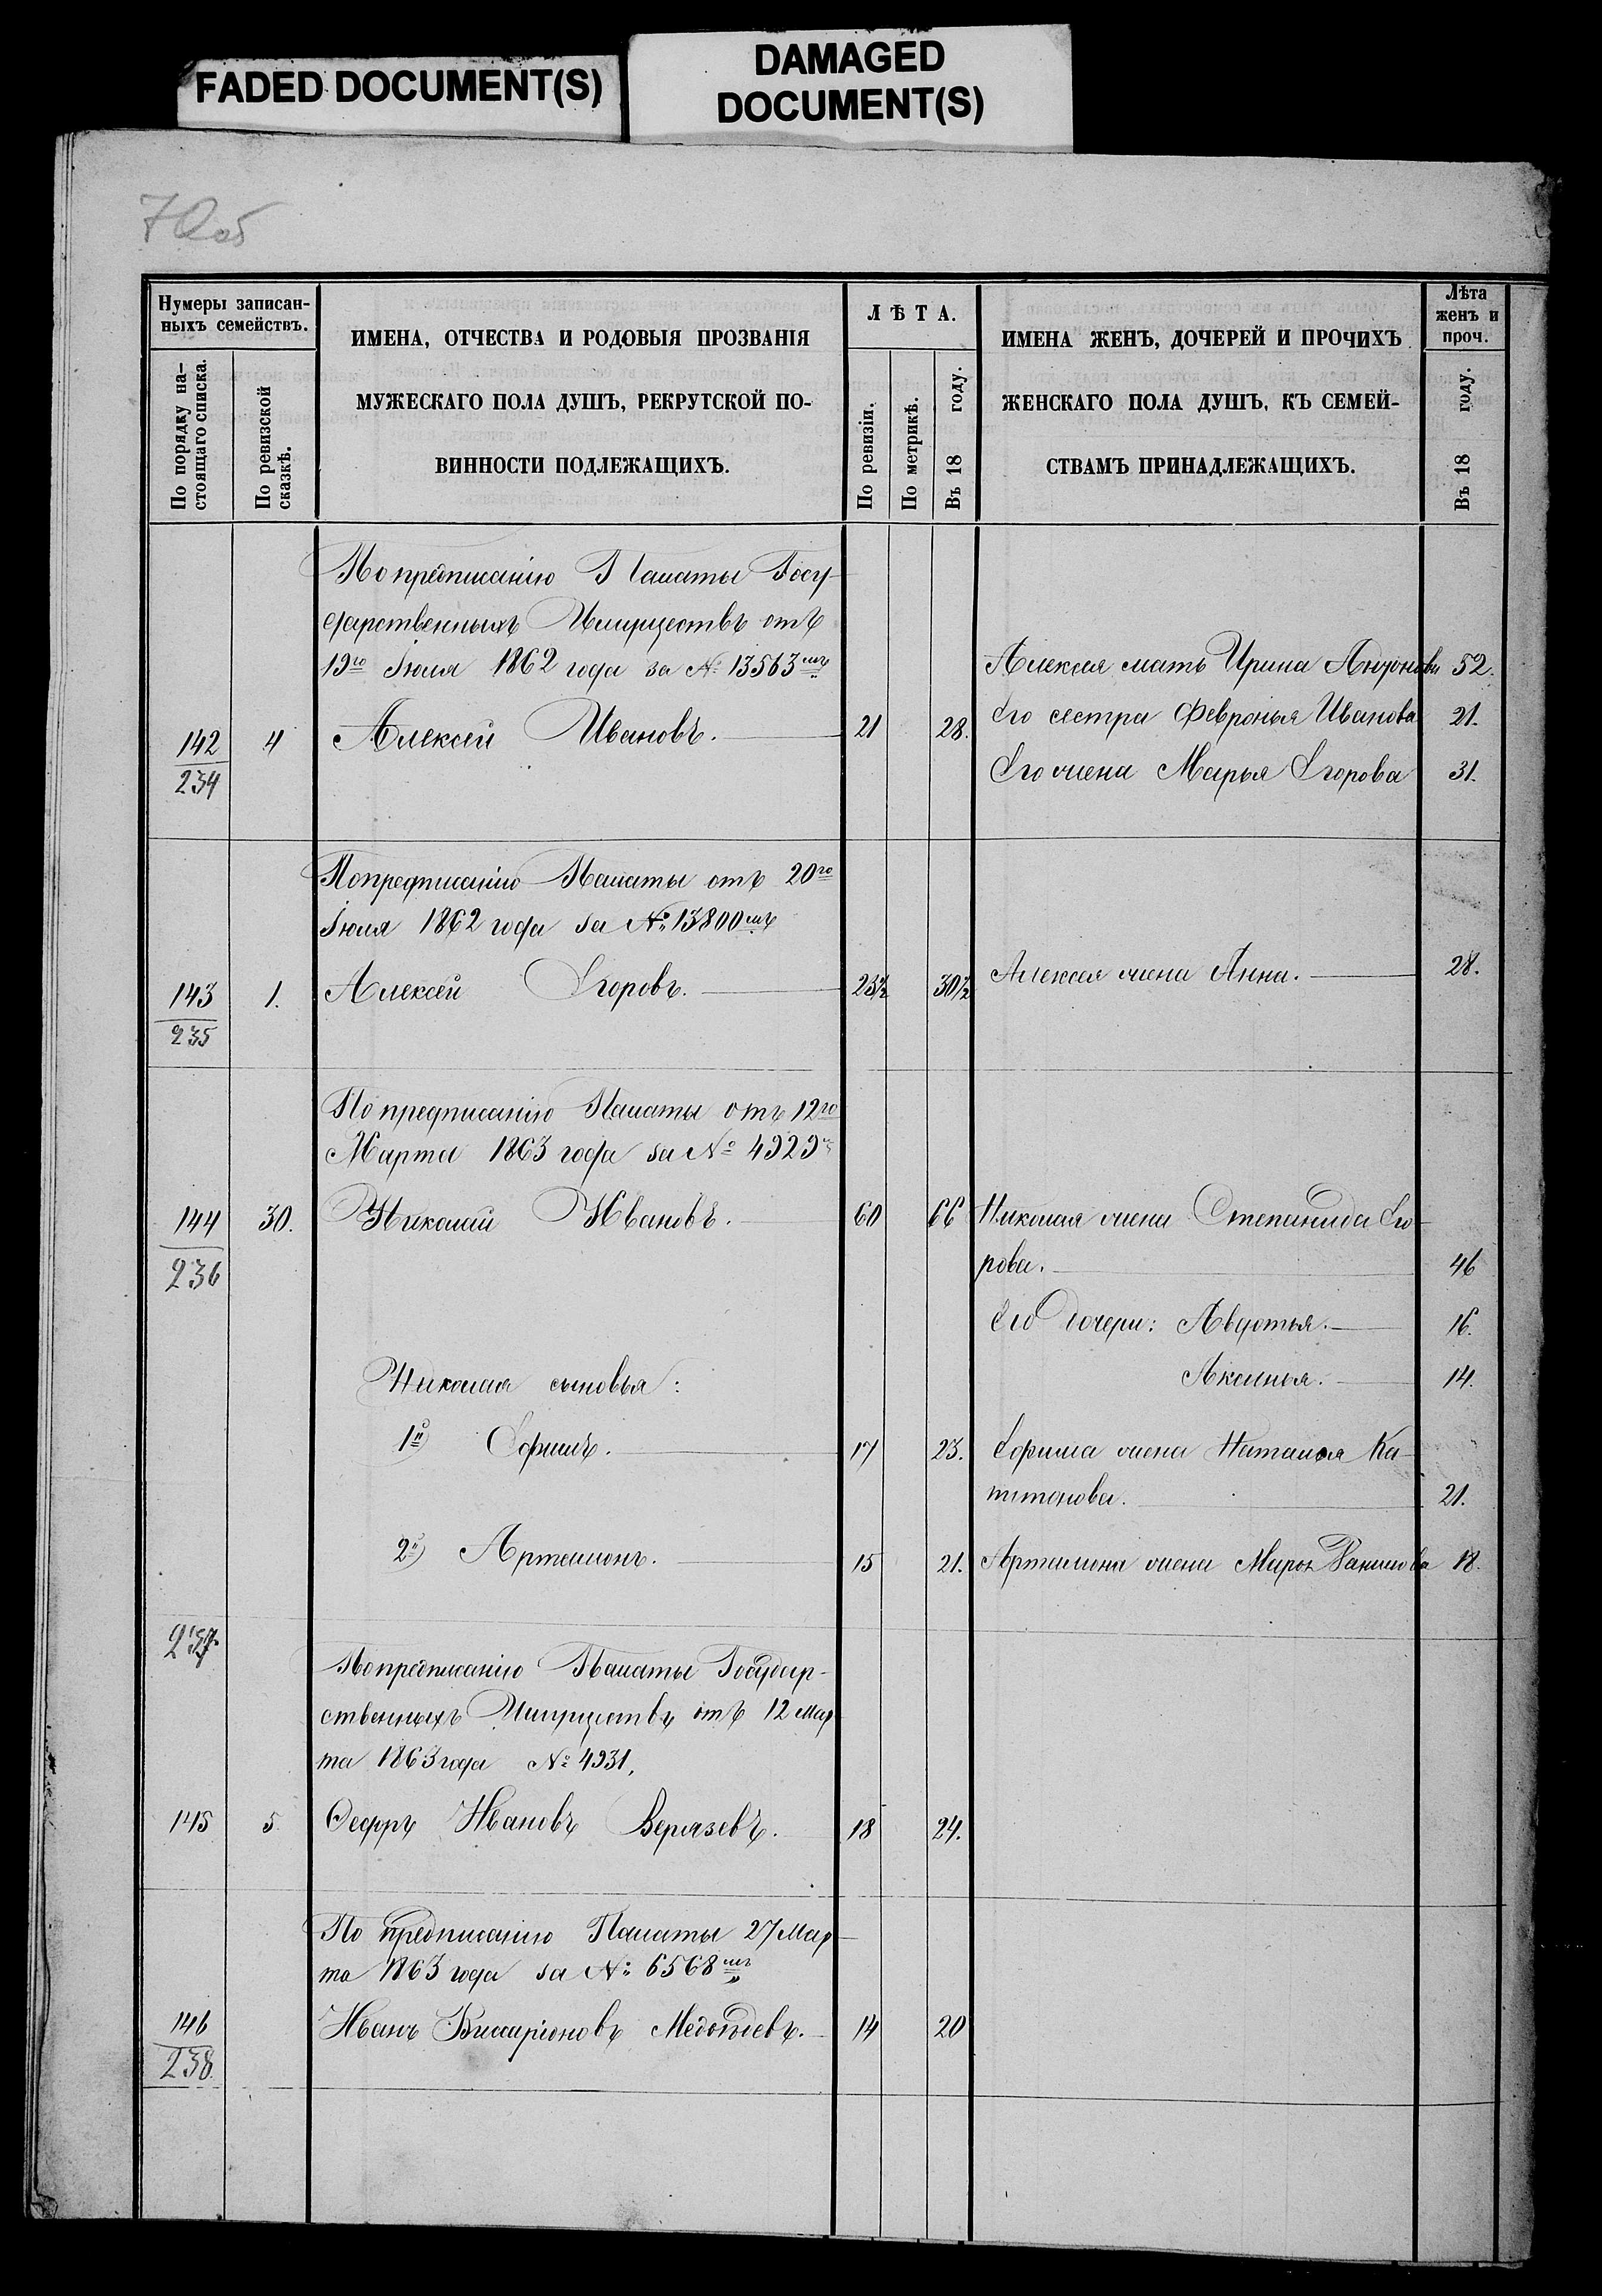 FADED DOCUMENT(S)
DAMAGED
DOCUMENT(S)
70об
Нумеры записан-
ныхъ семействъ.
По порядку на-
стоящаго списка.
По ревизской
сказкѣ.
ИМЕНА, ОТЧЕСТВА И РОДОВЫЯ ПРОЗВАНІЯ
МУЖЕСКАГО ПОЛА ДУШЪ, РЕКРУТСКОЙ ПО-
ВИННОСТИ ПОДЛЕЖАЩИХЪ.
ЛѢТА.
По ревизіи.
По метрикѣ.
Въ 18 году.
ИМЕНА ЖЕНЪ, ДОЧЕРЕЙ И ПРОЧИХЪ
ЖЕНСКАГО ПОЛА ДУШЪ, КЪ СЕМЕЙ-
СТВАМЪ ПРИНАДЛЕЖАЩИХЪ.
Лѣта
женъ и
проч.
Въ 18 году.
По предписанію Палаты Госу-
дарственныхъ Имуществъ отъ
19го Іюля 1862 года за № 13563мъ
Алексея мать Ирина Антонова 52.
142 4 Алексей Ивановъ. 21 28. Его сестра Февронья Иванова 21.
234
Его жена Марья Егорова 31.
По предписанію Палаты отъ 20го
Іюля 1862 года за № 13800мъ
143 1. Алексей Егоровъ. 23½ 30½ Алексея жена Анна. 28.
235
По предписанію Палаты отъ 12го
Марта 1863 года за № 4929
144 30. Николай Ивановъ. 60 66 Николая жена Степанида Его-
236
рова. 46
Его дочери: Авдотья. 16.
Николая сыновья:
Аксинья. 14.
1й) Ефимъ. 17 23. Ефима жена Наталья Ка-
питонова. 21.
2й) Артемонъ. 15 21. Артамона жена 18.
237
По предписанію Палаты Государ-
ственныхъ Имуществъ отъ 12 Мар
та 1863 года № 4931,
145 5 Федоръ Ивановъ 18 24.
По предписанію Палаты 27 Мар-
та 1863 года за № 6568мъ
146 Иванъ Виссаріоновъ 14 20
238.